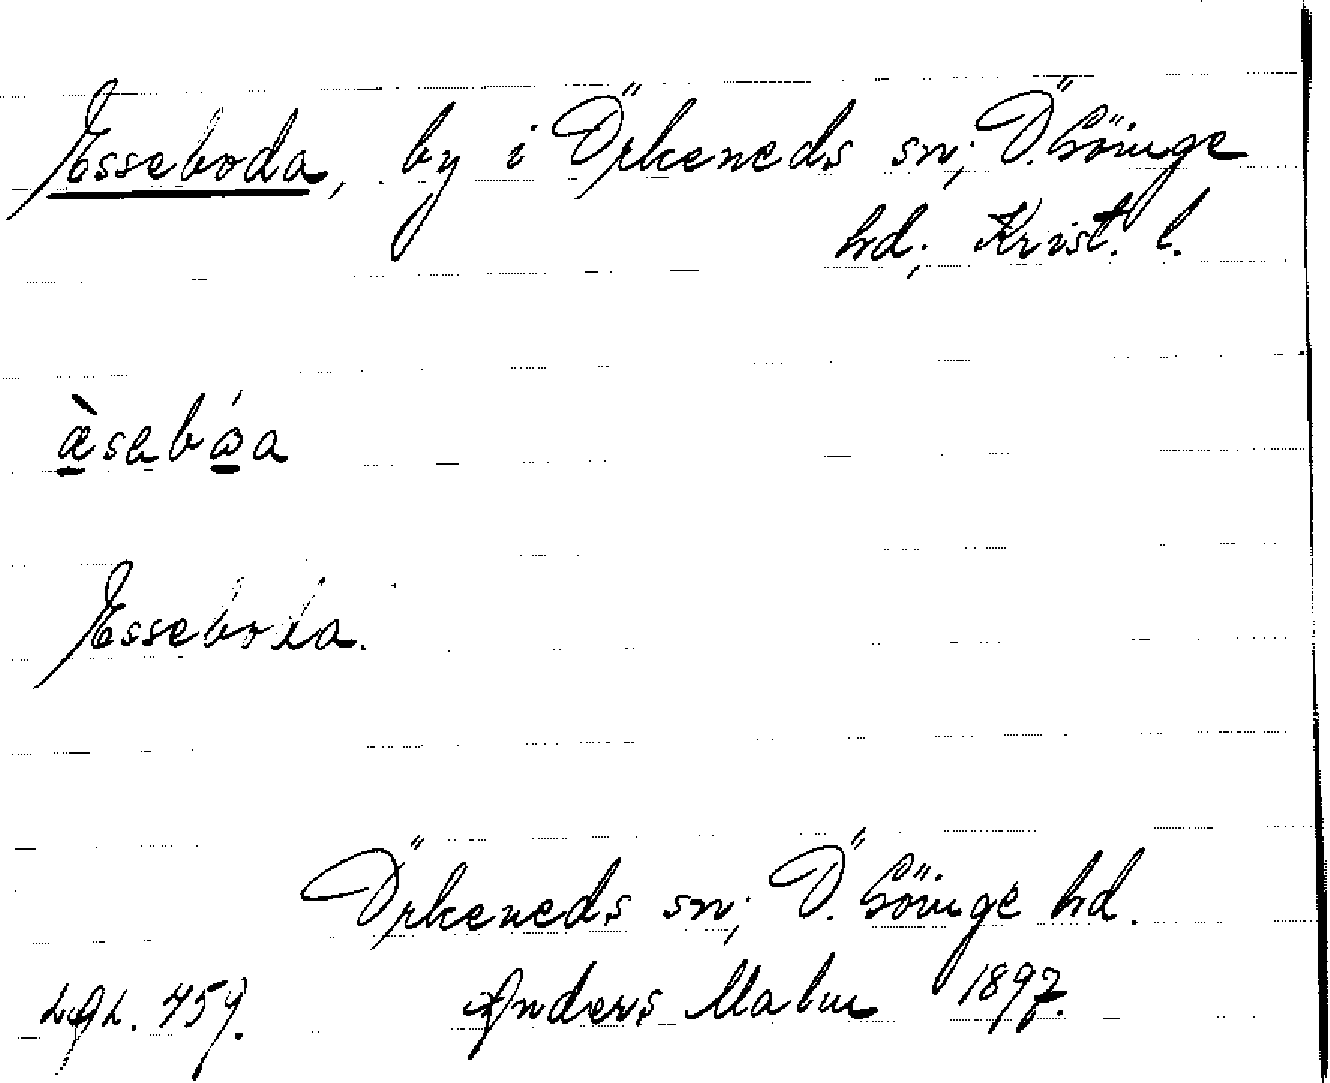 Esseboda, by i Örkeneds sn; Ö. Göinge
hd; Krist. l.
àsabǻa
Esseboda.
Örkeneds sn; Ö. Göinge hd.
Anders Malm 1897.